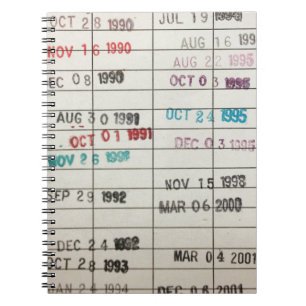 OCT 28 1990
NOV 16 1990
EC 08 1990
AUG 30 1991
OCT 01 1991
NOV 26 1991
SEP 29 1992
DEC 24 1992
OCT 28 1993
JAN 24 1994
JUL 19 1995
AUG 16 1995
OCT 03 1995
OCT 24 1995
DEC 03 1995
NOV 15 1998
MAR 06 2000
MAR 04 2001
DEC 06 2001